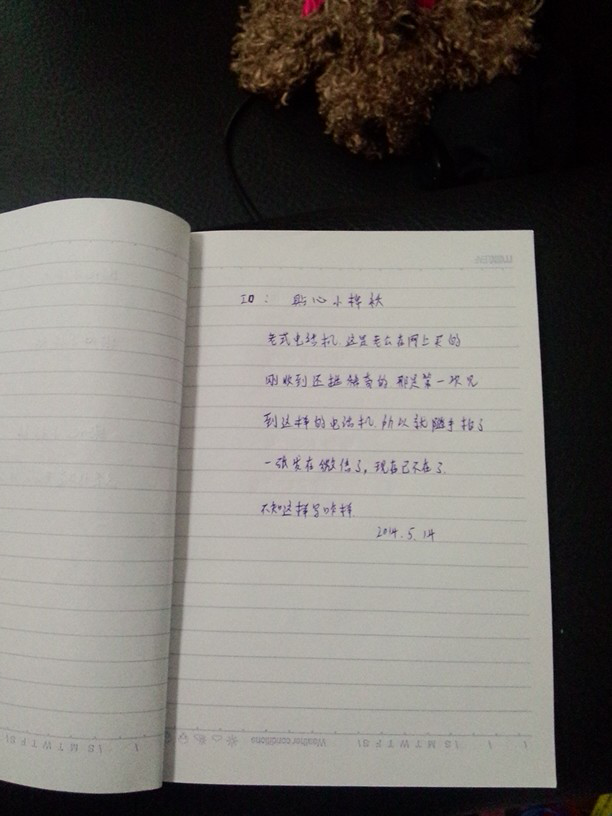 ID： 贴心小棉袄
老式电话机.这是老公在网上买的
刚收到还挺稀奇的 那是第一次见
到这样的电话机.所以就随手拍了
一张发在微信了，现在已不在了.
不知这样写咋样.
2014.5.14
Weather conditions
S M T W T F S
S M T W T F S